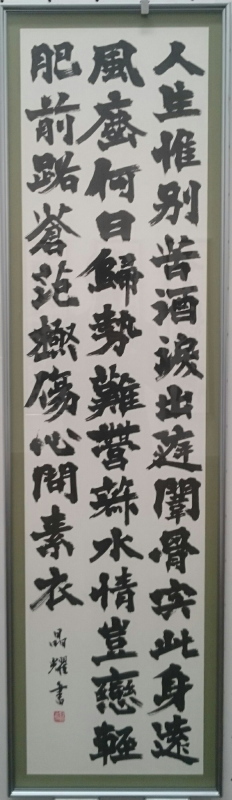 人生惟別苦洒淚出庭闈骨宍此身遠
風塵何日歸勢難營菽水情豈戀輕
肥前路蒼茫極傷心問素衣
晶耀書